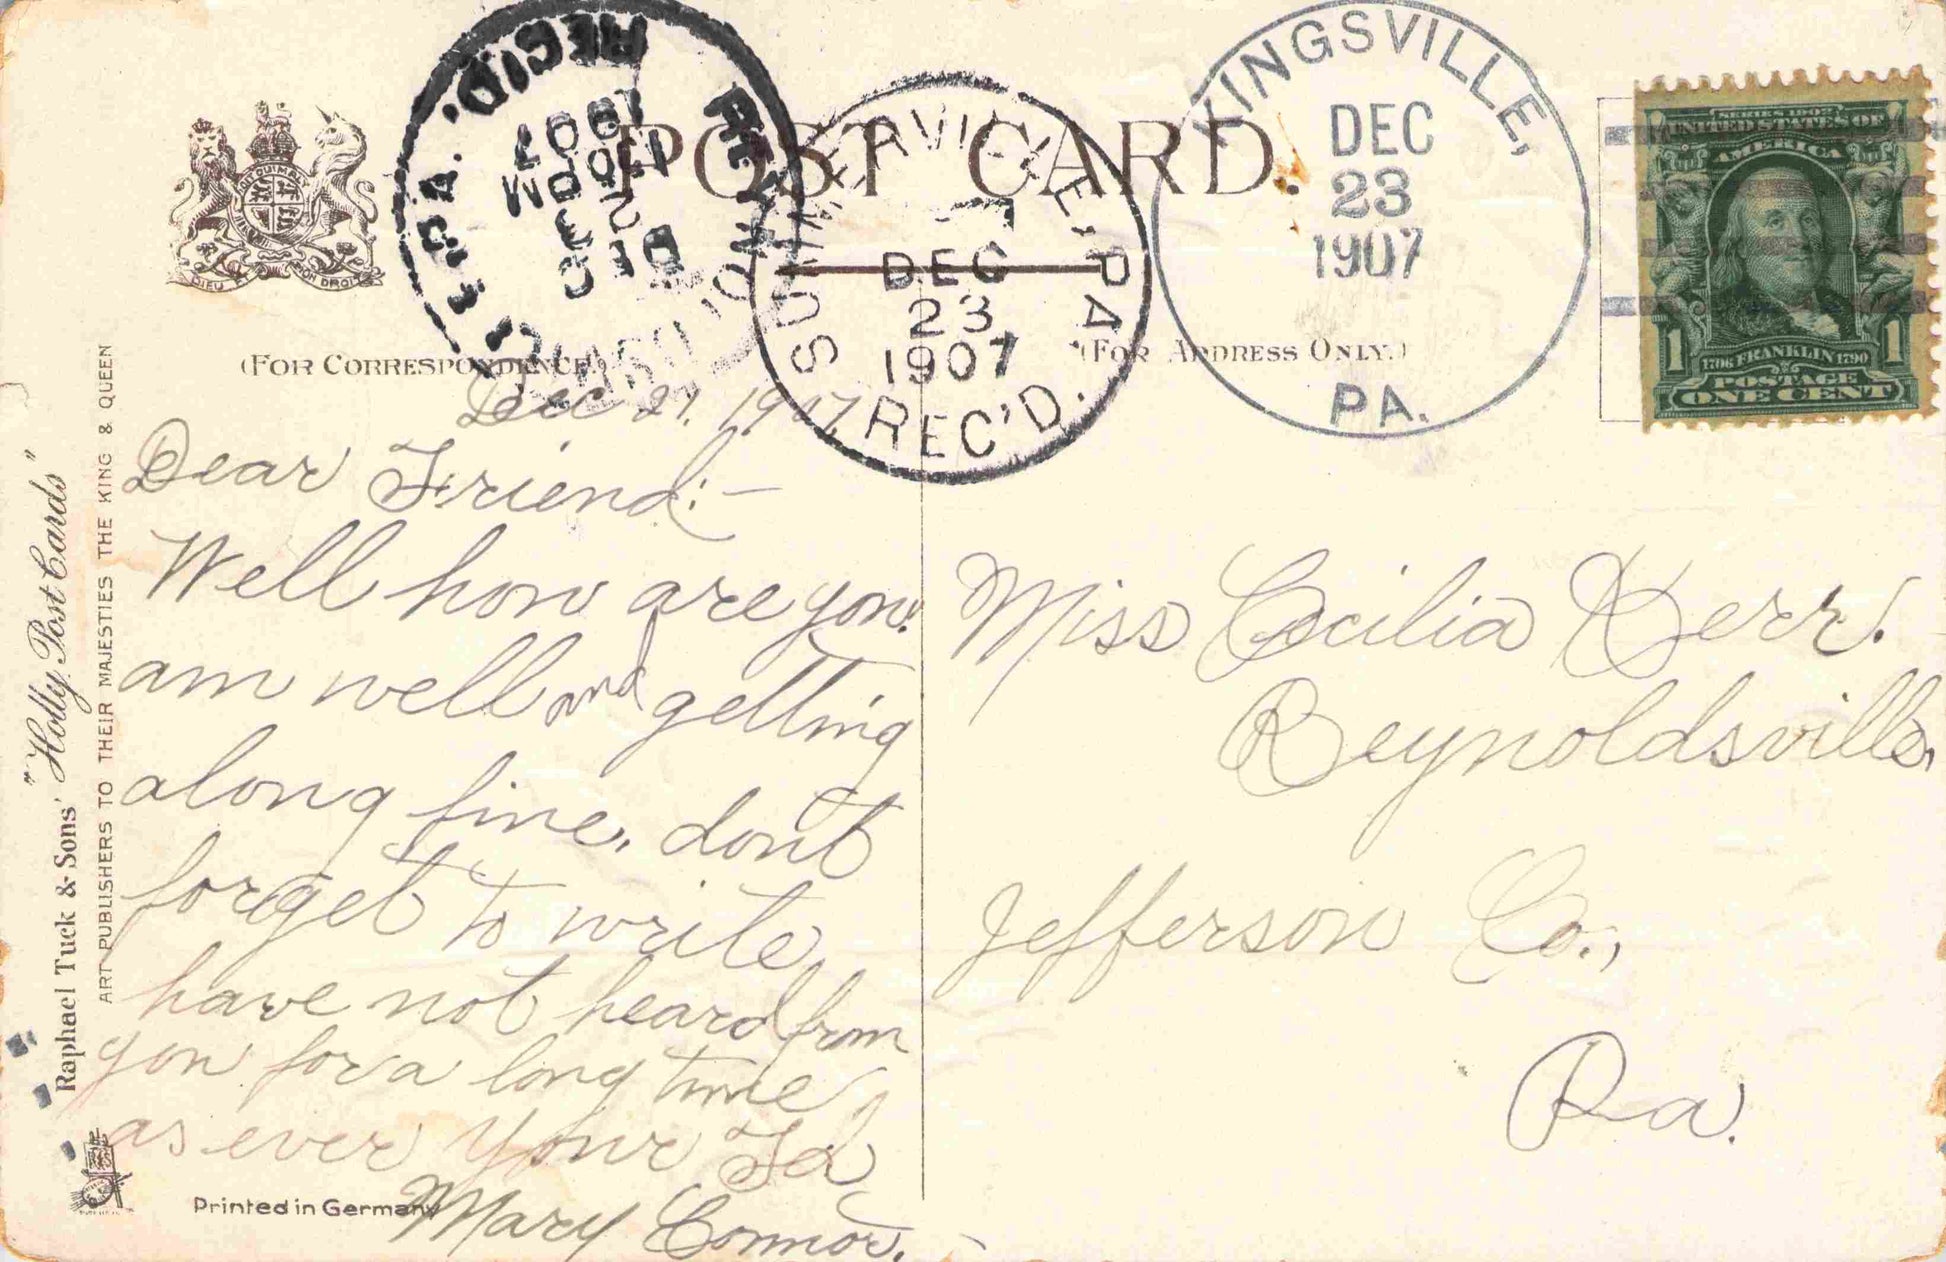 POST CARD.
DIEU ET MON DROIT
(FOR CORRESPONDENCE.)
(FOR ADDRESS ONLY.)
REC'D.
1907
1 30 PM
DEC
23
PA.
DEC
23
1907
REC'D.
PA.
KINGSVILLE,
DEC
23
1907
PA.
SERIES 1902
UNITED STATES OF
AMERICA
1706 FRANKLIN 1790
POSTAGE
1 ONE CENT 1
Raphael Tuck & Sons' "Holly Post Cards"
ART PUBLISHERS TO THEIR MAJESTIES THE KING & QUEEN
Dec 21, 1907
Dear Friend:-
Well how are you.
am well and getting
along fine. dont
forget to write
have not heard from
you for a long time
as ever your Fd
Mary Connor.
Printed in Germany
Miss Cecilia Kerr.
Reynoldsville,
Jefferson Co.,
Pa.